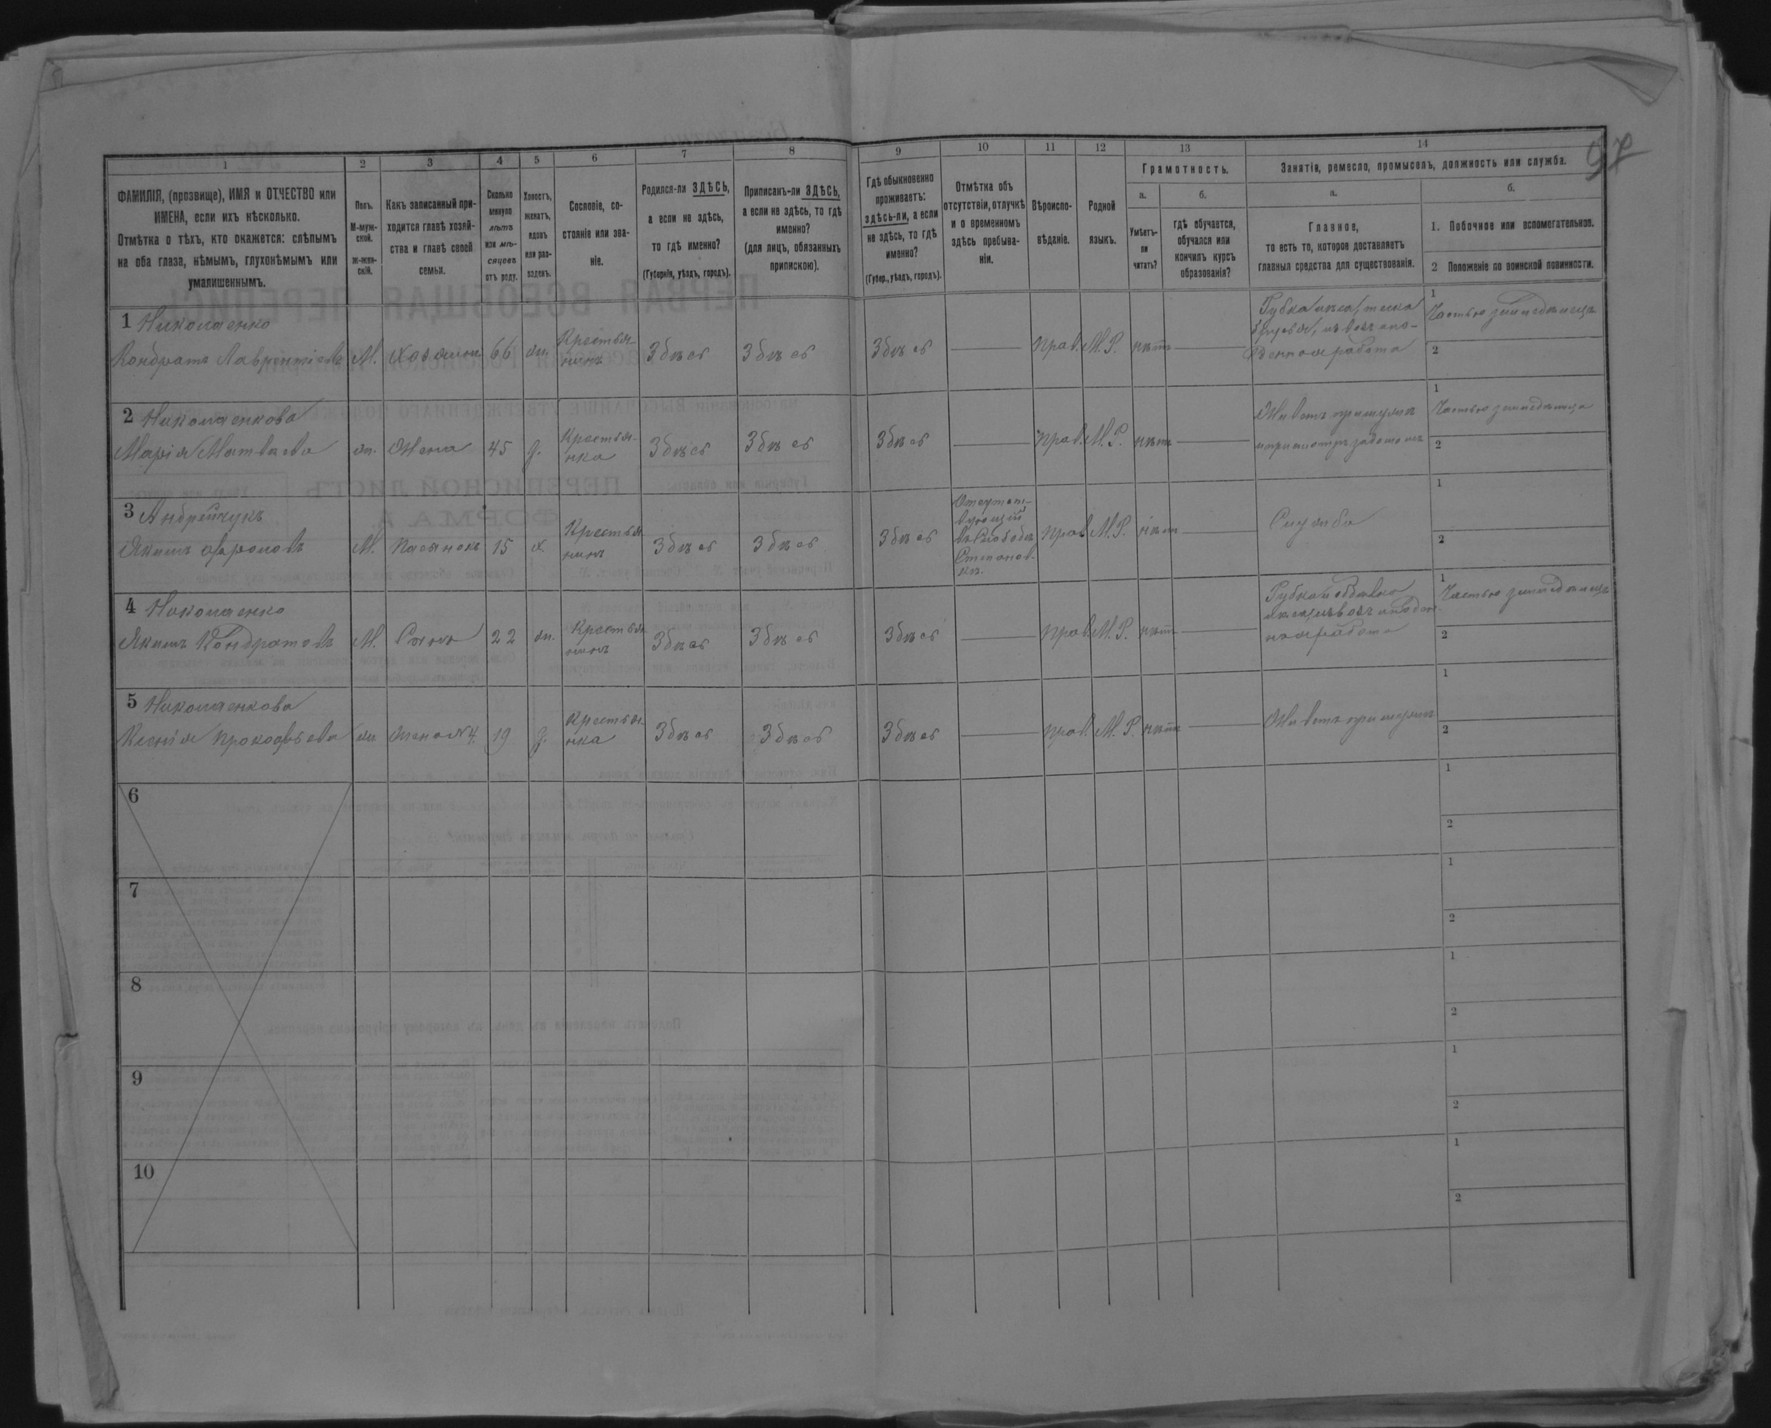 97
1 2 3 4 5 6 7 8 9 10 11 12 13 14
ФАМИЛІЯ, (прозвище), ИМЯ и ОТЧЕСТВО или
ИМЕНА, если ихъ нѣсколько.
Отмѣтка о тѣхъ, кто окажется: слѣпымъ
на оба глаза, нѣмымъ, глухонѣмымъ или
умалишеннымъ.
Полъ.
М-муж-
ской.
Ж-жен-
скій.
Какъ записанный при-
ходится главѣ хозяй-
ства и главѣ своей
семьи.
Сколько
минуло
лѣтъ
или мѣ-
сяцевъ
отъ роду.
Холостъ,
женатъ,
вдовъ
или раз-
веденъ.
Сословіе, со-
стояніе или зва-
ніе.
Родился-ли ЗДѢСЬ,
а если не здѣсь,
то гдѣ именно?
(Губернія, уѣздъ, городъ).
Приписанъ-ли ЗДѢСЬ,
а если не здѣсь, то гдѣ
именно?
(для лицъ, обязанныхъ
припискою).
Гдѣ обыкновенно
проживаетъ:
здѣсь-ли, а если
не здѣсь, то гдѣ
именно?
(Губер., уѣздъ, городъ).
Отмѣтка объ
отсутствіи, отлучкѣ
и о временномъ
здѣсь пребыва-
ніи.
Вѣроиспо-
вѣданіе.
Родной
языкъ.
Грамотность.
а.
Умѣетъ-
ли
читать?
б.
гдѣ обучается,
обучался или
кончилъ курсъ
образованія?
Занятіе, ремесло, промыселъ, должность или служба.
а.
Главное,
то есть то, которое доставляетъ
главныя средства для существованія.
б.
1. Побочное или вспомогательное.
2 Положеніе по воинской повинности.
1 Николаенко
Кондратъ Лаврентіевъ М. Хозяинъ 66 жн Крестья-
нинъ Здѣсь Здѣсь Здѣсь Прав. М.Р. нѣтъ
1
2
2 Николаенкова
Марія Матвѣева жн. Жена 45 з. Крестьян-
ка Здѣсь Здѣсь Здѣсь Прав. М.Р. нѣтъ
1
2
3 Андрейчукъ
Якимъ М. Пасынокъ 15 х. Крестья-
нинъ Здѣсь Здѣсь Здѣсь Отсутст-
вующій
въ Слободѣ
Степанов-
кѣ. Прав. М.Р. нѣтъ Служба
1
2
4 Николаенко
Якимъ Кондратовъ М. Сынъ 22 жн. Крестья-
нинъ Здѣсь Здѣсь Здѣсь Прав. М.Р. нѣтъ
1
2
5 Николаенкова
Ксенія Прокофьева жн Жена №4 19 з. Крестьян-
ка Здѣсь Здѣсь Здѣсь Прав. М.Р. нѣтъ Живетъ при мужѣ
1
2
6
1
2
7
1
2
8
1
2
9
1
2
10
1
2